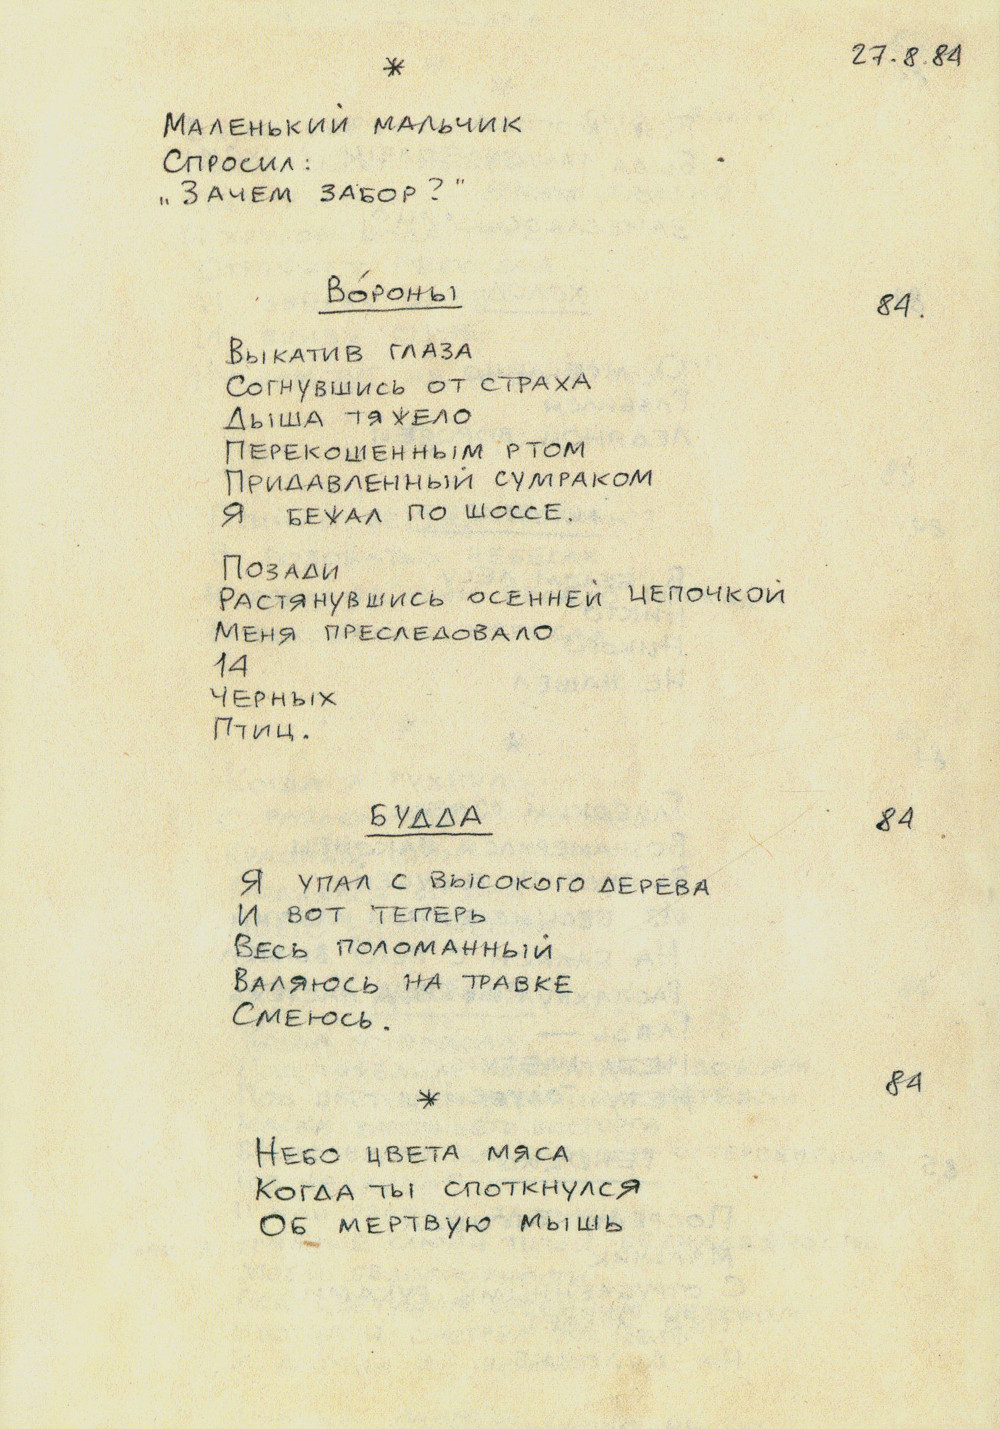 *
27.8.84
Маленький мальчик
Спросил:
„Зачем забор?"
Во́роны
84.
Выкатив глаза
Согнувшись от страха
Дыша тяжело
Перекошенным ртом
Придавленный сумраком
Я бежал по шоссе.
Позади
Растянувшись осенней цепочкой
Меня преследовало
14
Черных
Птиц.
Будда
84
Я упал с высокого дерева
И вот теперь
Весь поломанный
Валяюсь на травке
Смеюсь.
*
84
Небо цвета мяса
Когда ты споткнулся
Об мертвую мышь